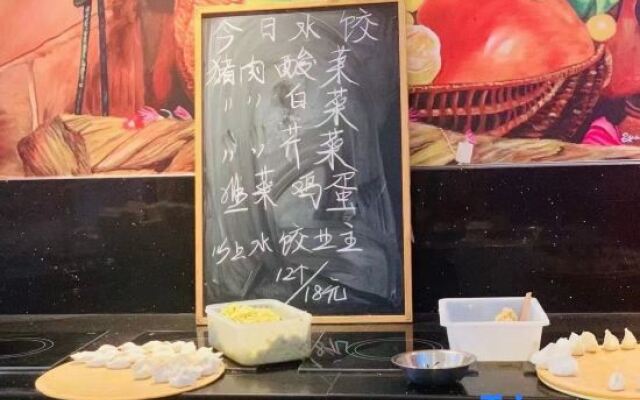 今日水饺
猪肉酸菜
〃 〃 白菜
〃 〃 芹菜
韭菜鸡蛋
以上水饺
12个/18元